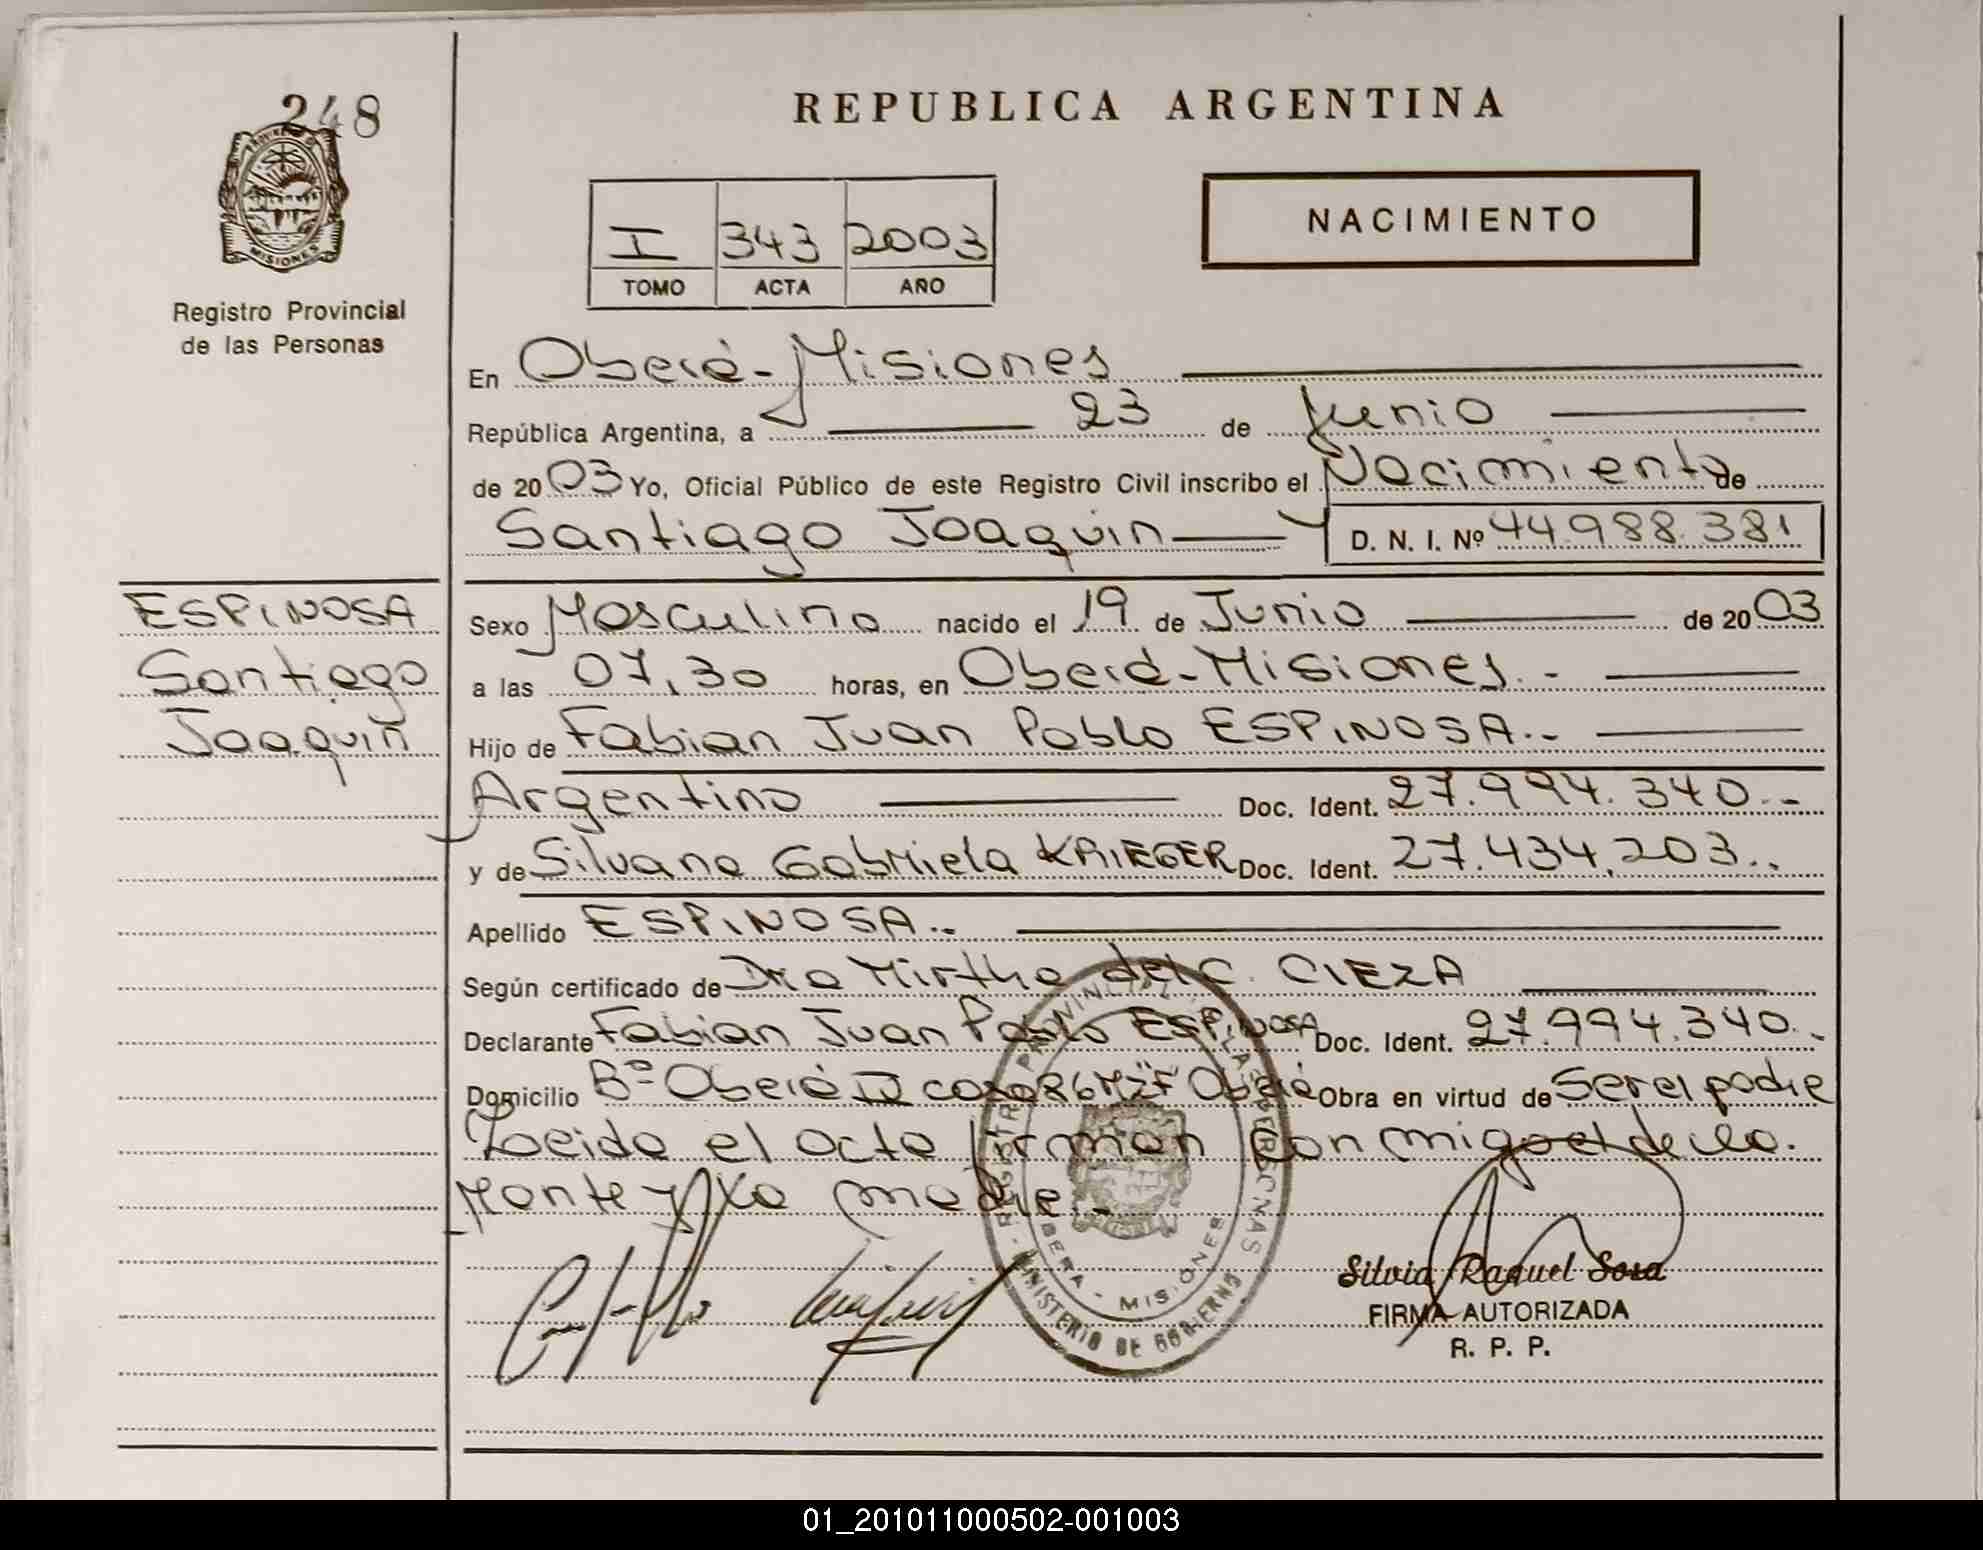 248
REPUBLICA ARGENTINA
I 343 2003
TOMO ACTA AÑO
NACIMIENTO
MISIONES
Registro Provincial
de las Personas
En Oberá - Misiones
República Argentina, a 23 de Junio
de 2003 Yo, Oficial Público de este Registro Civil inscribo el Nacimiento de
Santiago Joaquin D. N. I. Nº 44.988.381
ESPINOSA
Santiago
Joaquin
Sexo Masculino nacido el 19 de Junio de 2003
a las 07,30 horas, en Oberá - Misiones. -
Hijo de Fabian Juan Pablo ESPINOSA.-
Argentino Doc. Ident. 27.994.340.-
y de Silvana Gabriela KRIEGER Doc. Ident. 27.434.203..
Apellido ESPINOSA..
Según certificado de Dra Mirtha del C. CIEZA
Declarante Fabian Juan Pablo ESPINOSA Doc. Ident. 27.994.340..
Domicilio Bº Oberá II casa Oberá Obra en virtud de Ser el padre
Leida el acta firman con migo el decla.
rante y la madre.-
REGISTRO PROVINCIAL DE LAS PERSONAS
OBERA - MISIONES
MINISTERIO DE GOBIERNO
Silvia Raquel Sosa
FIRMA AUTORIZADA
R. P. P.
01_201011000502-001003